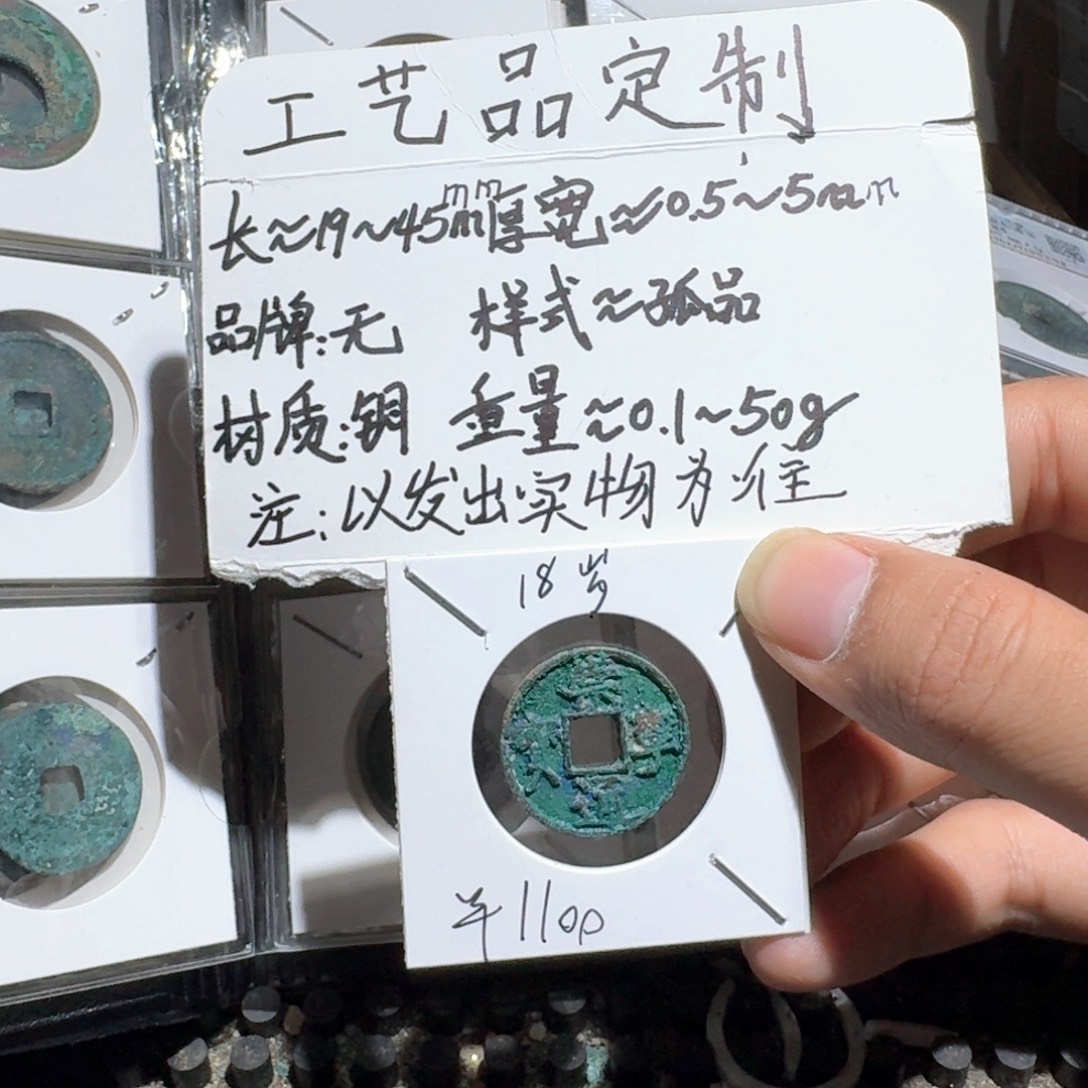 工艺品定制
长≈19~45mm厚宽≈0.5~5mm
品牌:无 样式≈孤品
材质:铜 重量≈0.1~50g
注:以发出实物为准
18岁